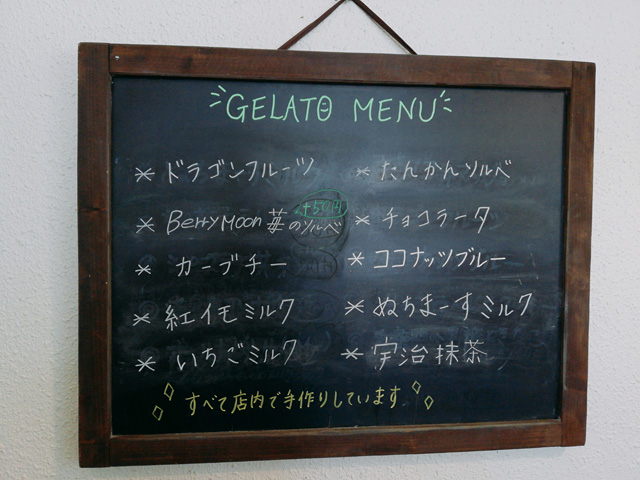 GELATO MENU
* ドラゴンフルーツ
* BerryMoon 苺のソルベ +50円
* カーブチー
* 紅イモミルク
* いちごミルク
* たんかんソルベ
* チョコラータ
* ココナッツブルー
* ぬちまーすミルク
* 宇治抹茶
すべて店内で手作りしています